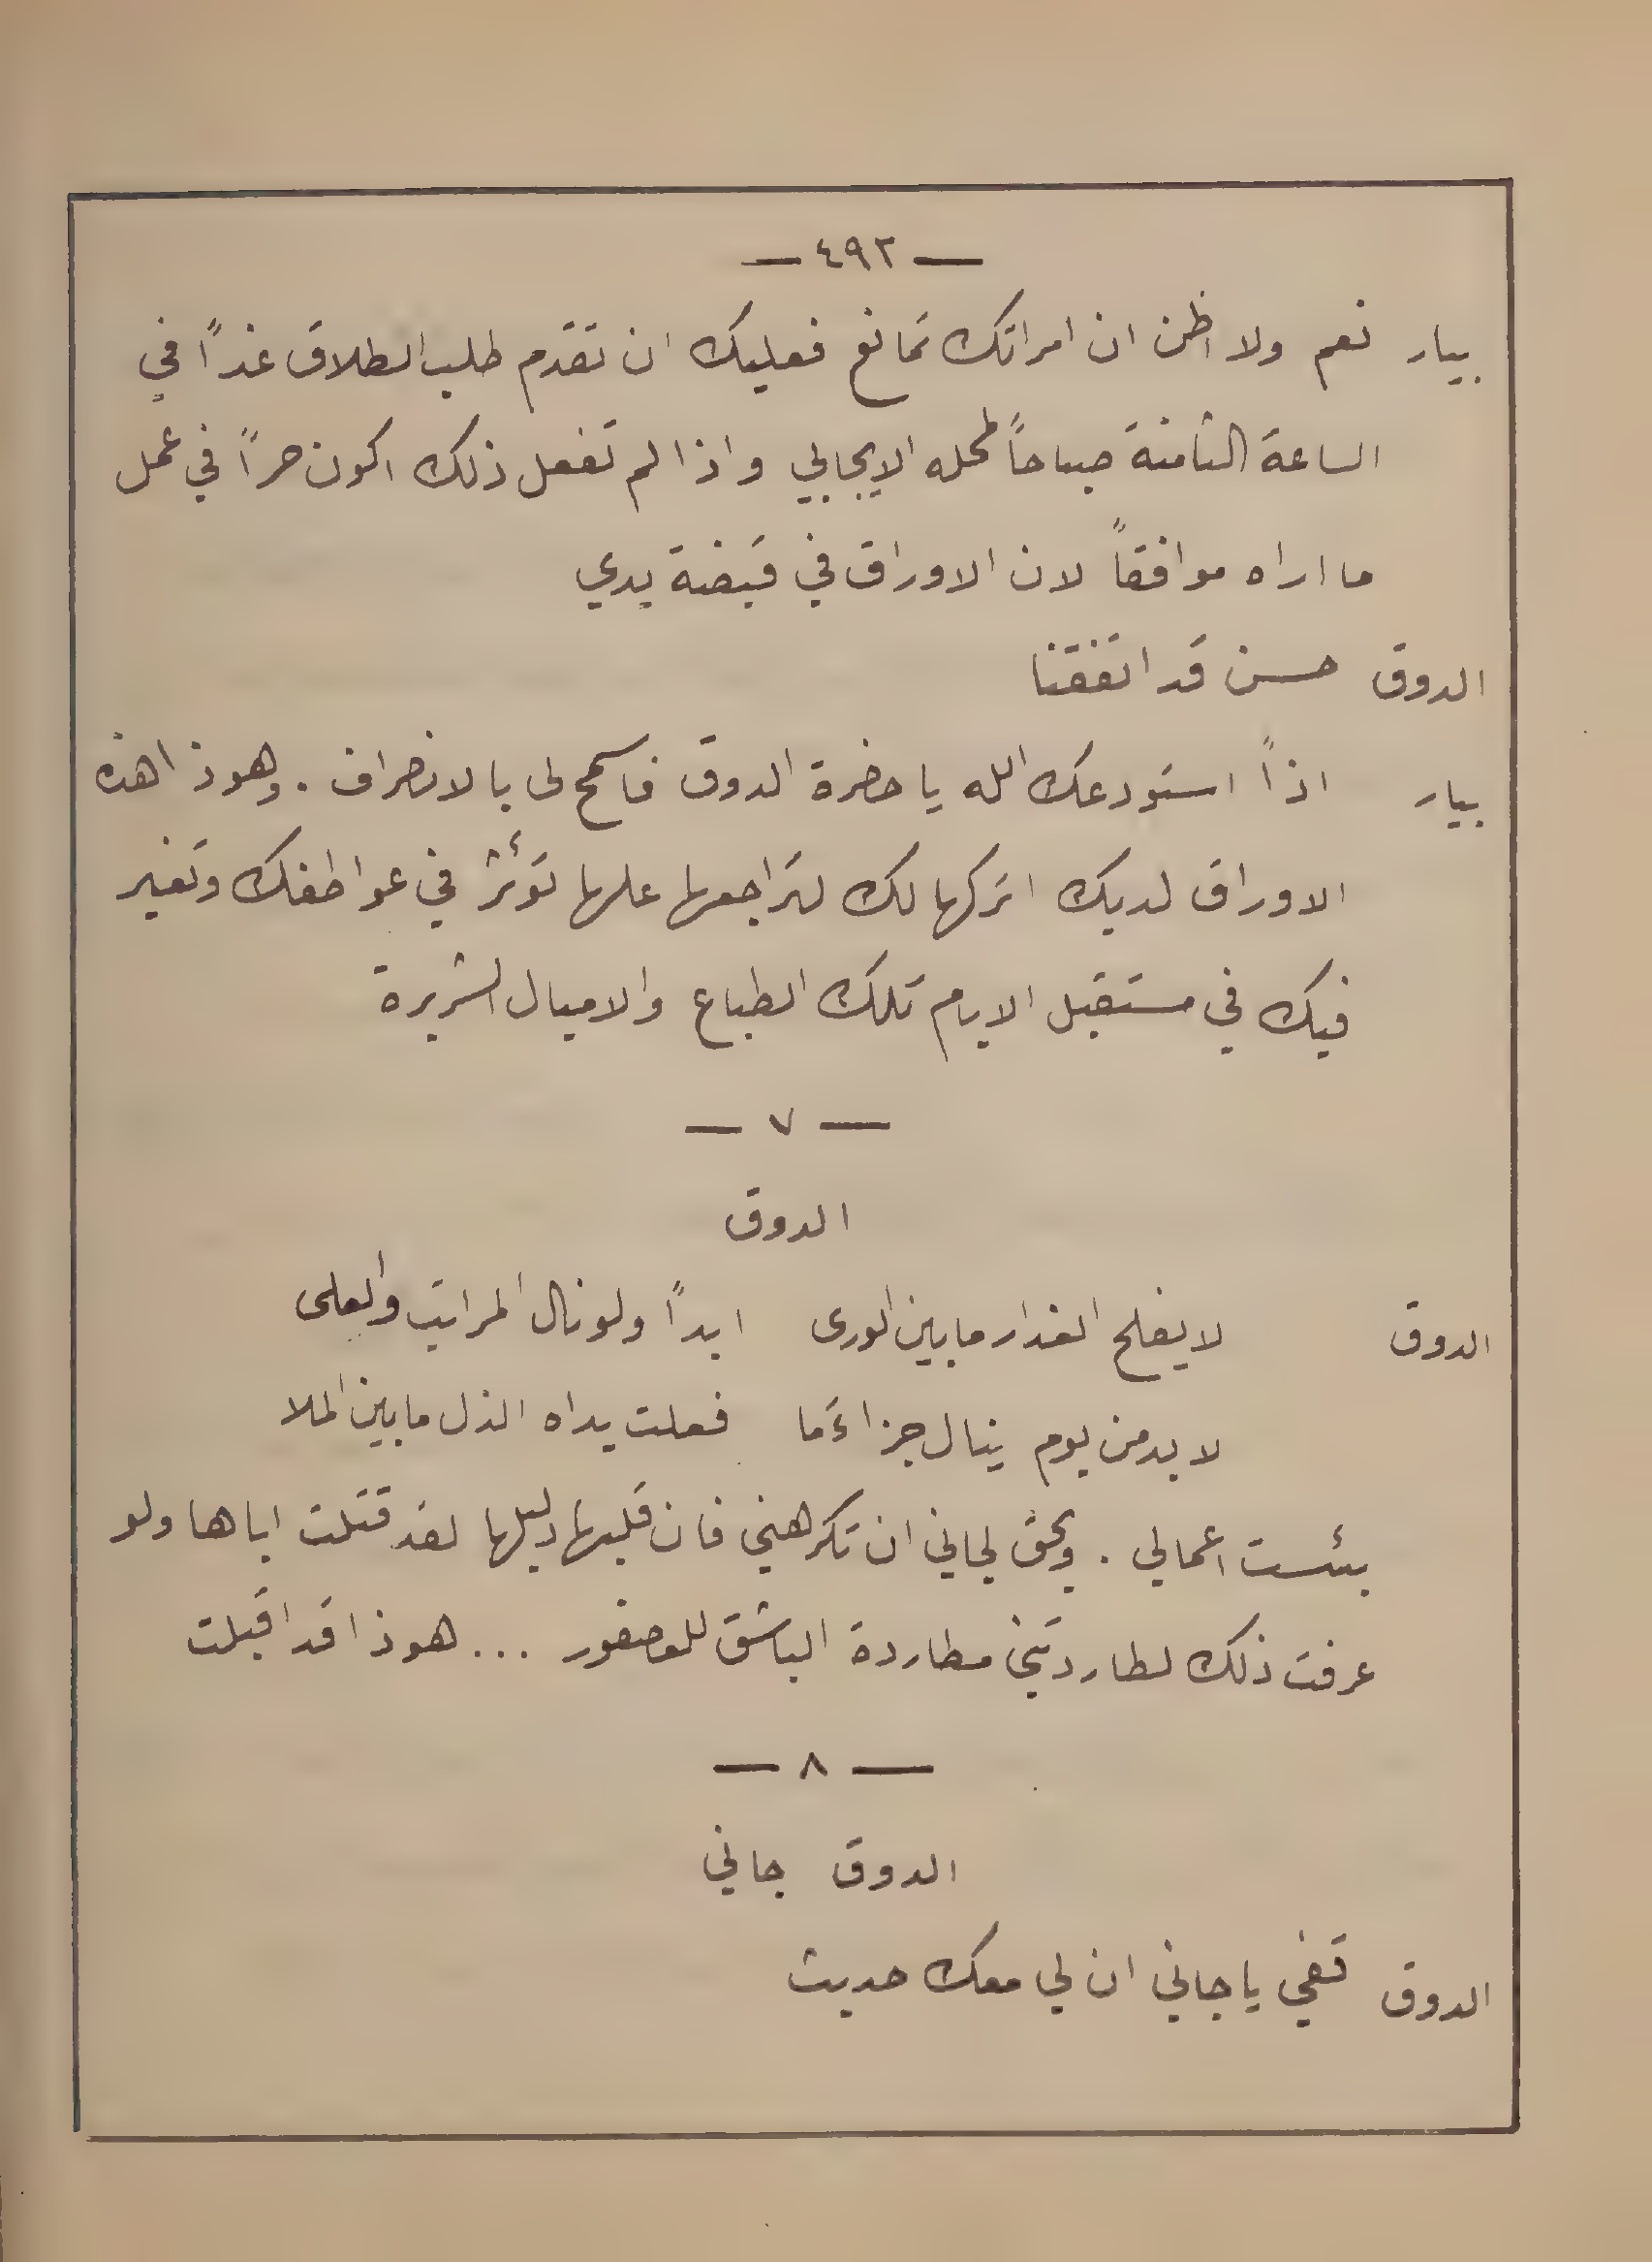 — ٤٩٢ —
بيار نعم ولا اظن ان امراتك تمانع فعليك ان تقدم طلب الطلاق غداً في
الساعة الثامنة صباحاً لمحله الايجابي واذا لم تفعل ذلك اكون حراً في عمل
ما اراه موافقاً لان الاوراق في قبضة يدي
الدوق حسن قد اتفقنا
بيار اذاً استودعك الله يا حضرة الدوق فاسمح لى بالانصراف . وهوذا هذه
الاوراق لديك اتركها لك لتراجعها علها تؤثر في عواطفك وتغير
فيك في مستقبل الايام تلك الطباع والاميال الشريرة
— ٧ —
الدوق
الدوق لا يفلح الغدار ما بين الورى ابداً ولو نال المراتب والعلى
لا بد من يوم ينال جزاءَ ما فعلت يداه الذل ما بين الملا
بئست اعمالي . ويحق لجاني ان تكرهني فان قلبها دليلها لقد قتلت اباها ولو
عرفت ذلك لطاردتني مطاردة الباشق للعصفور ... هوذا قد اقبلت
— ٨ —
الدوق جاني
الدوق قفي يا جاني ان لي معك حديث